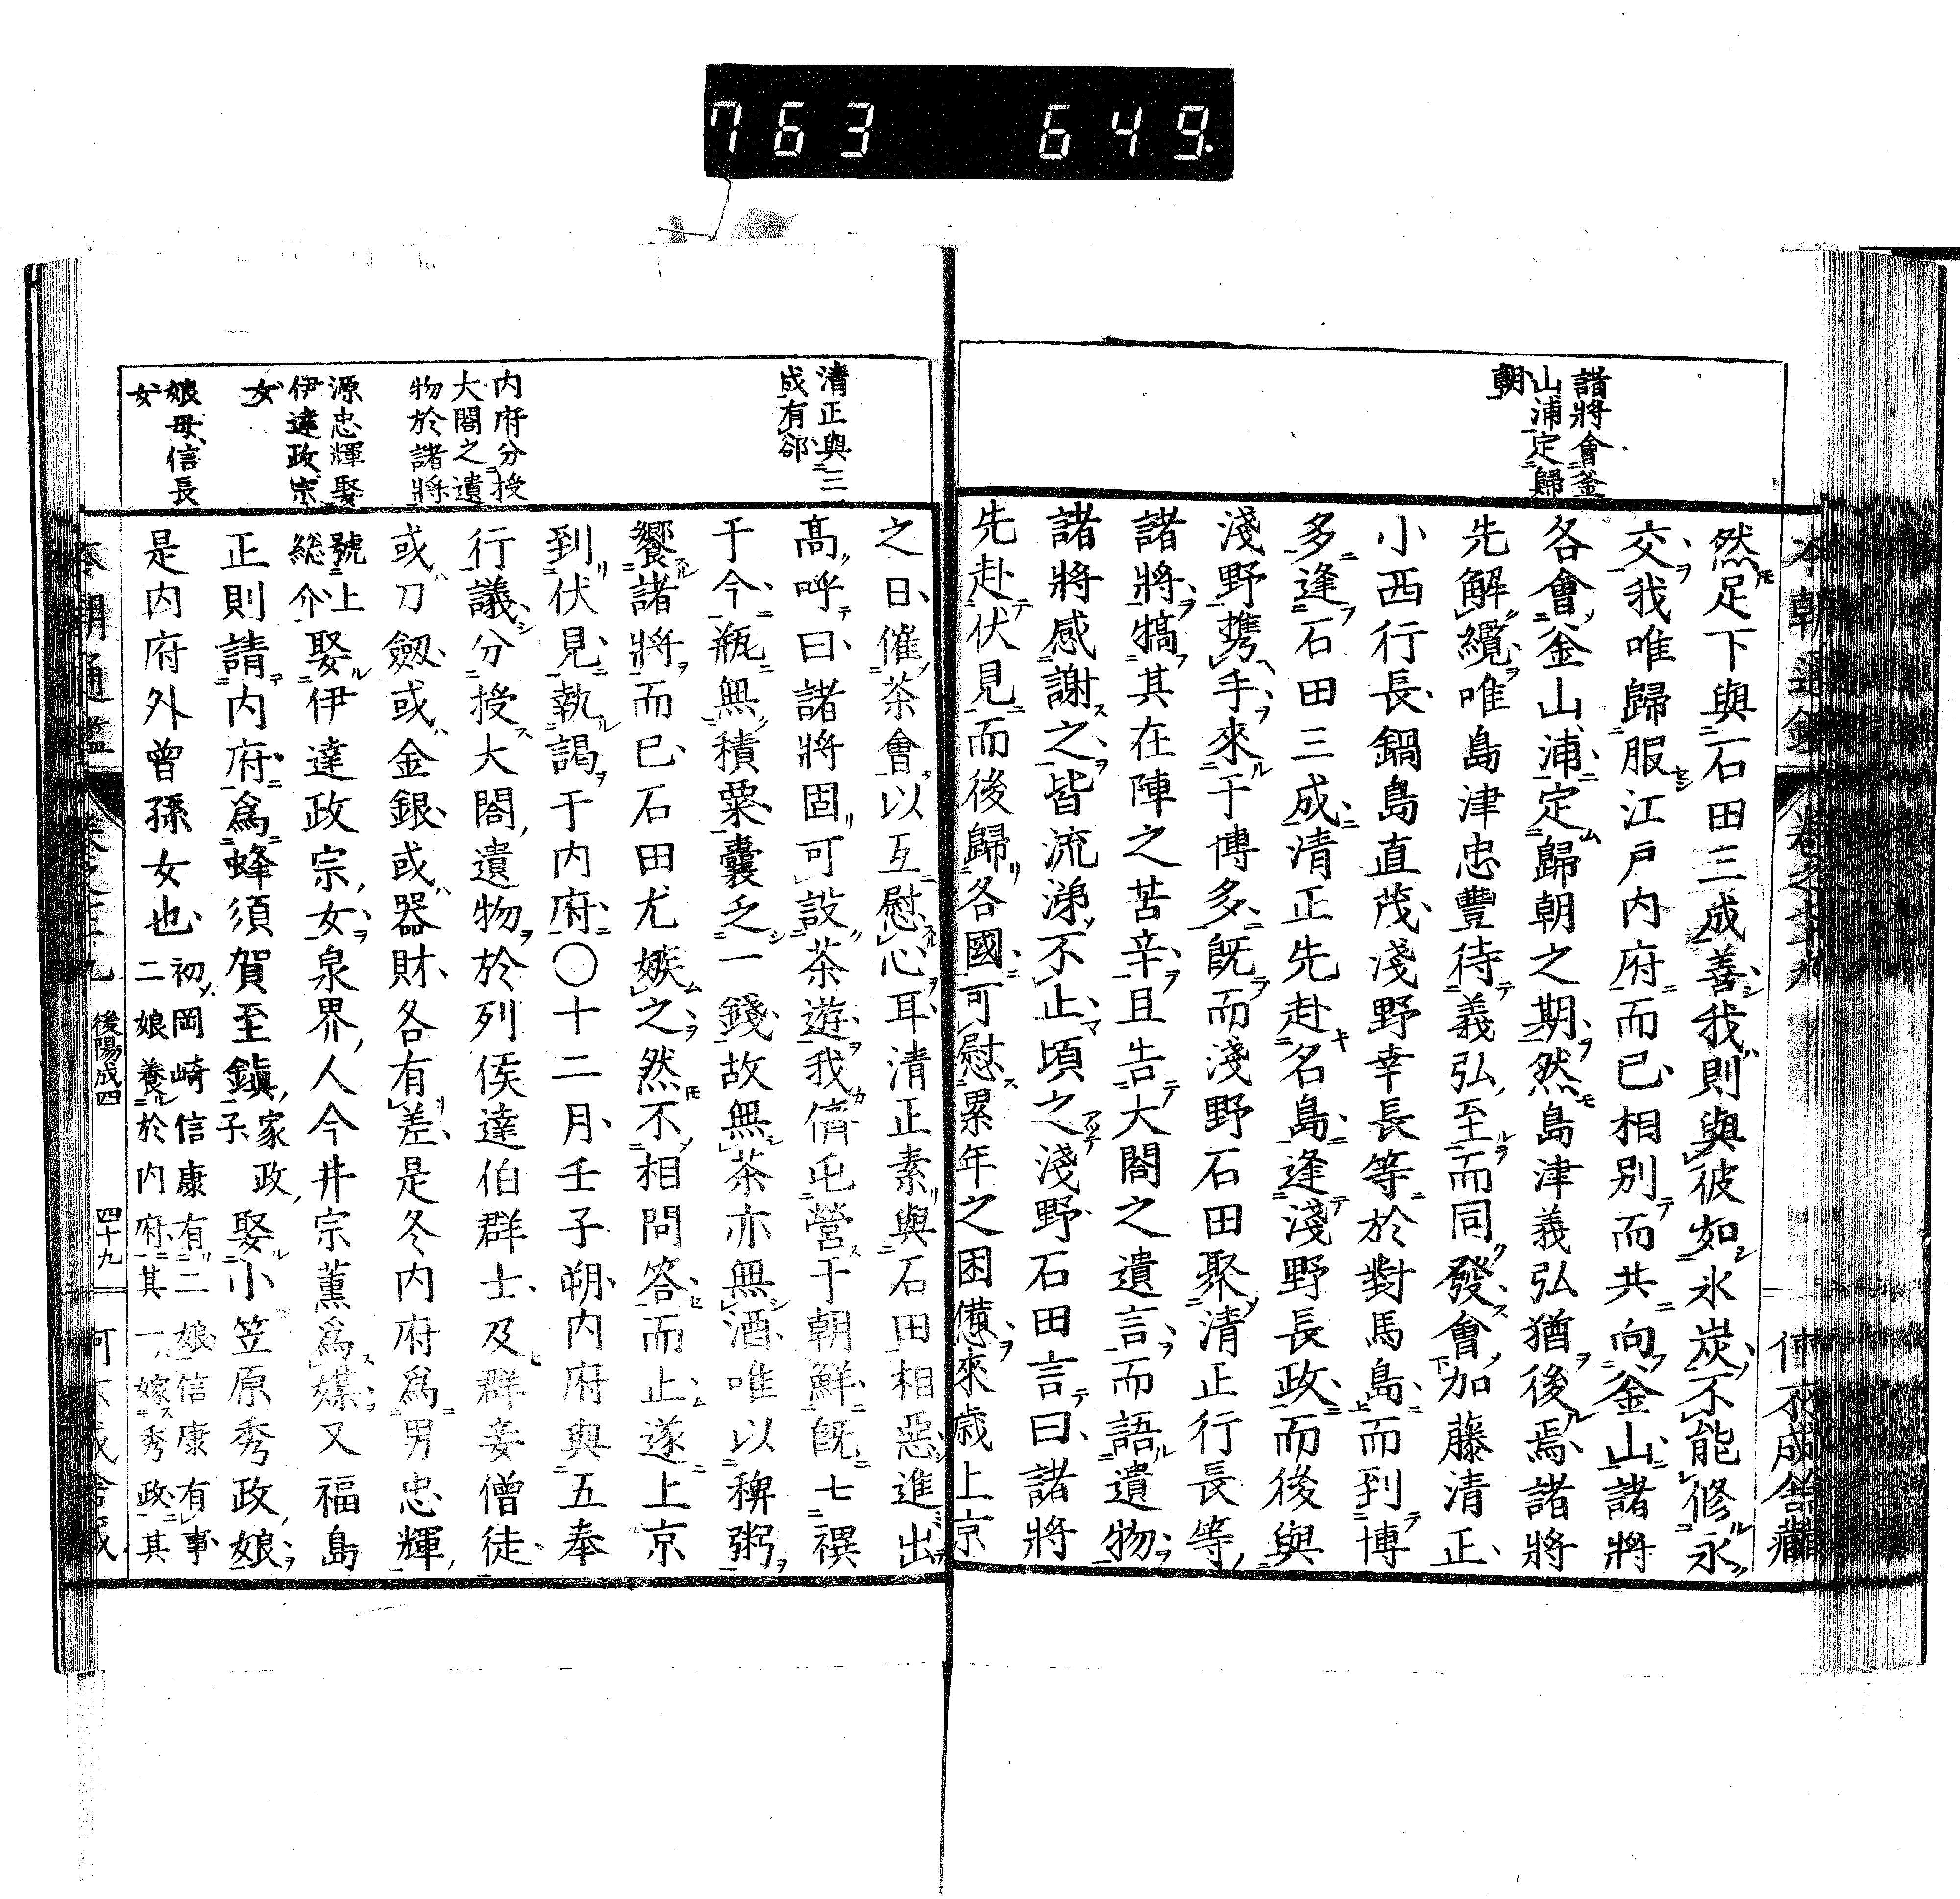 763 649.
諸將會釜
山浦定歸
朝
然足下與石田三成善我則與彼如氷炭不能修永
交我唯歸服江戸内府而已相別而共向釜山諸將
各會釜山浦定歸朝之期然島津義弘猶後焉諸將
先解纜唯島津忠豐待義弘至而同發會加藤清正
小西行長鍋島直茂淺野幸長等於對馬島而到博
多逢石田三成清正先赴名島逢淺野長政而後與
淺野携手來于博多既而淺野石田聚清正行長等
諸將犒其在陣之苦辛且告大閤之遺言而語遺物
諸將感謝之皆流涕不止頃之淺野石田言曰諸將
先赴伏見而後歸各國可慰累年之困憊來歲上京
清正與三
成有郤
内府分授
大閤之遺
物於諸將
源忠輝娶
伊達政宗
女
娘母信長
女
之日催茶會以互慰心耳清正素與石田相惡進出
高呼曰諸將固可設茶遊我儕屯營于朝鮮既七禩
于今瓶無積粟囊乏一錢故無茶亦無酒唯以稗粥
饗諸將而已石田尤嫉之然不相問答而止遂上京
到伏見執謁于内府〇十二月壬子朔内府與五奉
行議分授大閤遺物於列侯達伯群士及群妾僧徒
或刀劔或金銀或器財各有差是冬内府爲男忠輝
號上
総介娶伊達政宗女泉界人今井宗薫爲媒又福島
正則請内府爲蜂須賀至鎭家政
子娶小笠原秀政娘
是内府外曾孫女也初岡崎信康有二娘信康有事
二娘養於内府其一嫁秀政其
後陽成四
四十九